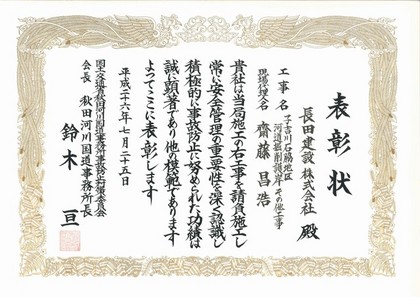 表彰状
長田建設株式会社 殿
工事名 子吉川石脇地区
河道掘削護岸その他工事
現場代理人名 齋藤昌浩
貴社は当局施工の右工事を請負施工し
常に安全管理の重要性を深く認識し
積極的に事故防止に努められた功績は
誠に顕著であり他の模範であります
よってここに表彰します
平成二十六年七月二十五日
国土交通省秋田河川国道事務所工事事故防止対策委員会
会長 秋田河川国道事務所長
鈴木 亘